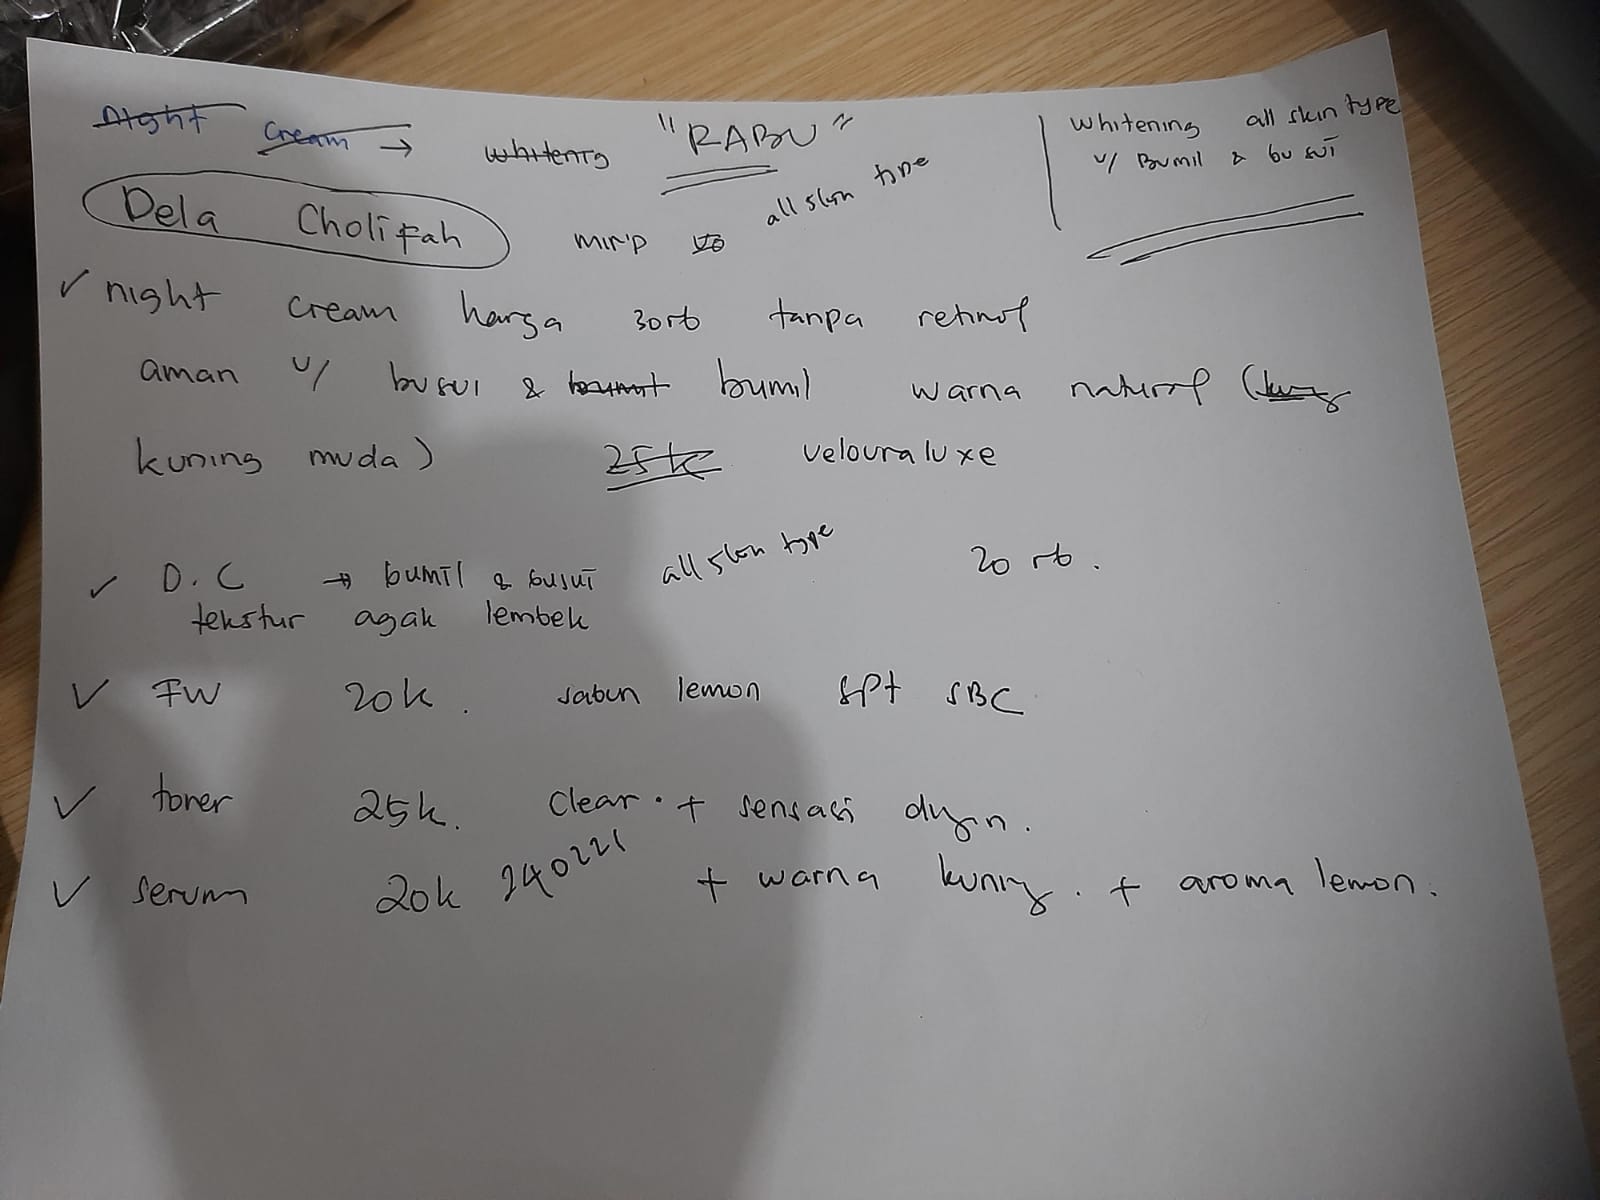 Night Cream → whitening "RABU"
whitening all skin type
u/ Bumil & busui
Dela Cholifah mirip all skin type
✓ night cream harga 30rb tanpa retinol
aman u/ busui & bumil warna natural (
kuning muda) 25k velouraluxe
✓ D.C → bumil & busui all skin type 20 rb.
tekstur agak lembek
✓ FW 20k. sabun lemon spt SBC
✓ toner 25k. Clear. + sensasi dingin.
✓ serum 20k 240221 + warna kuning. + aroma lemon.